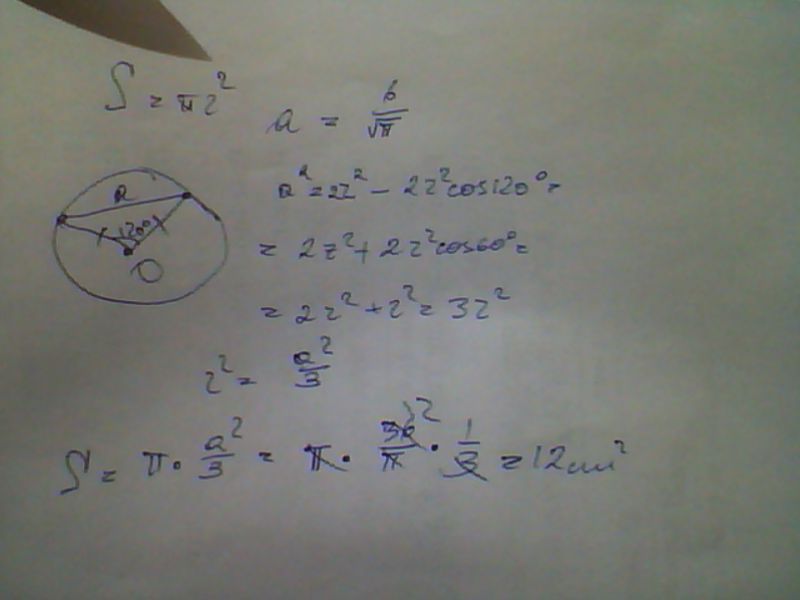 S = πr²
a = 6/√π
a
120°
O
a² = 2r² - 2r²cos120° =
= 2r² + 2r²cos60° =
= 2r² + r² = 3r²
r² = a²/3
S = π · a²/3 = π · 36/π · 1/3 = 12 cm²
12